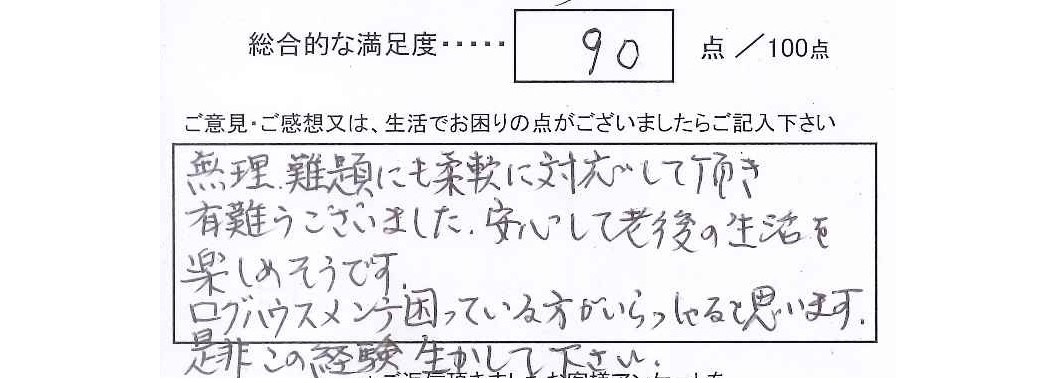 総合的な満足度・・・・・ 90 点 ／100点
ご意見・ご感想又は、生活でお困りの点がございましたらご記入下さい
無理、難題にも柔軟に対応して頂き
有難うございました。安心して老後の生活を
楽しめそうです。
ログハウスメンテ困っている方がいらっしゃると思います。
是非この経験生かして下さい。